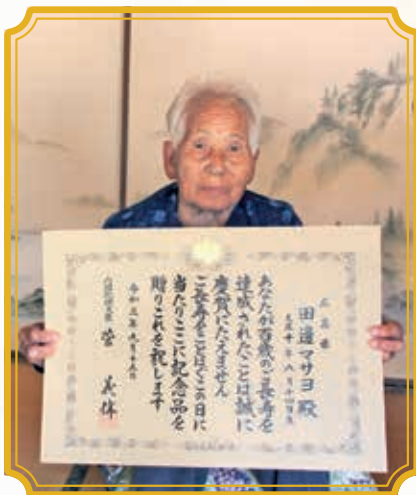 広島県
田邊マサヨ殿
あなたが百歳のご長寿を
達成されたことは誠に
慶賀にたえません
ご長寿をことほぐこの日に
当たりここに記念品を
贈りこれを祝します
令和三年九月十五日
内閣総理大臣 菅 義偉